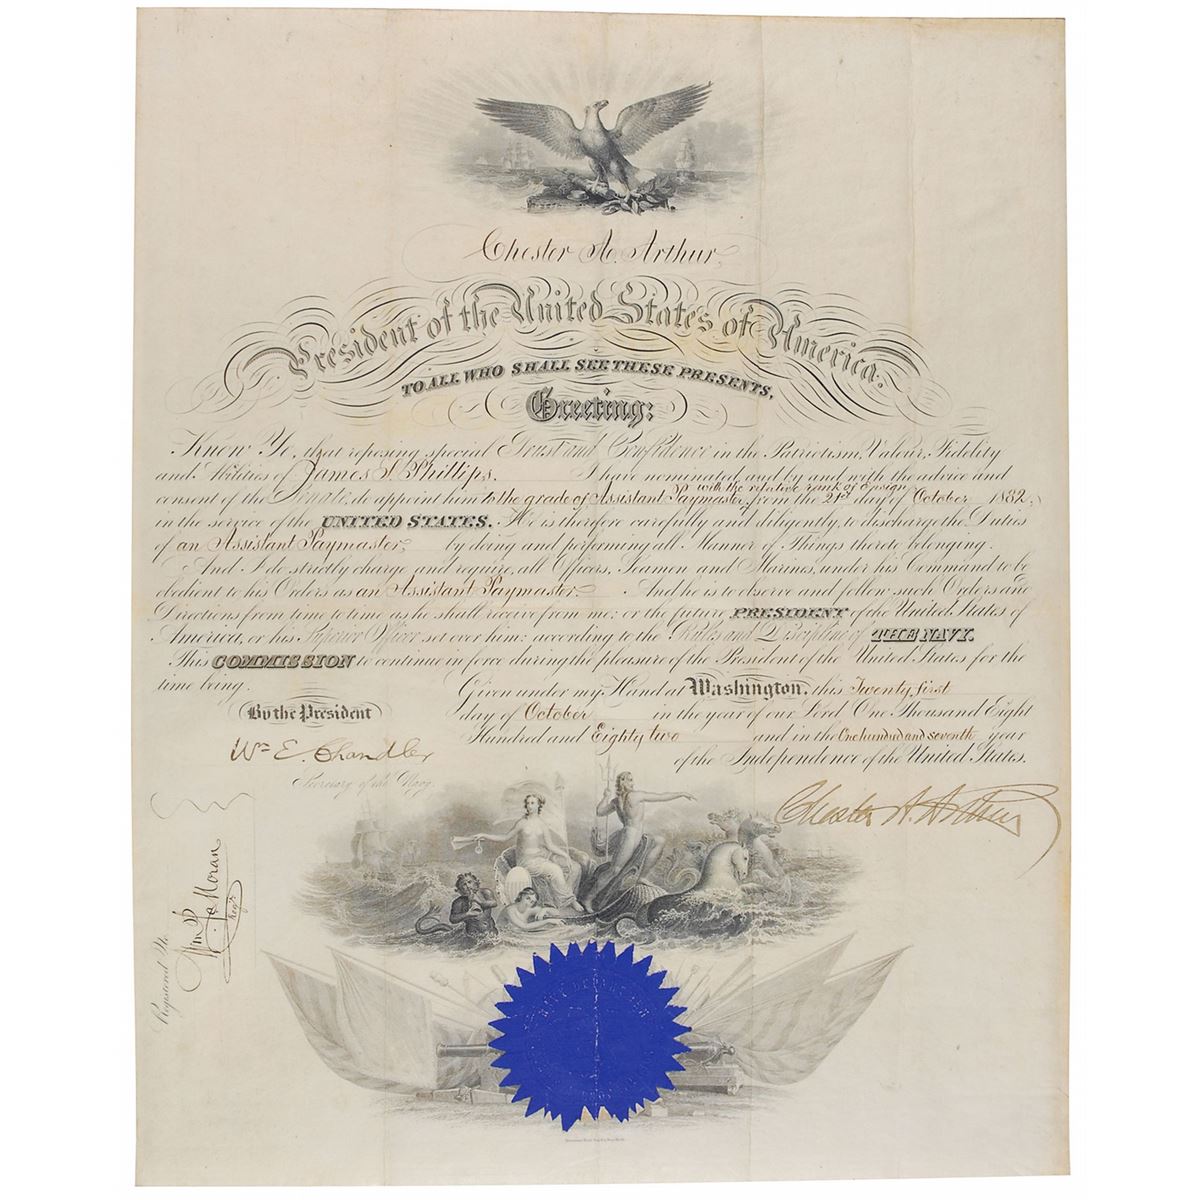 Chester A. Arthur,
President of the United States of America.
TO ALL WHO SHALL SEE THESE PRESENTS,
Greeting:
Know Ye, that reposing special Trust and Confidence in the Patriotism, Valour, Fidelity
and Abilities of James S. Phillips. I have nominated and by and with the advice and
with the relative rank of Ensign,
consent of the Senate do appoint him to the grade of Assistant Paymaster, from the 21st day of October 1882,
in the service of the UNITED STATES. He is therefore carefully and diligently, to discharge the Duties
of an Assistant Paymaster, by doing and performing all Manner of Things thereto belonging.
And I do strictly charge and require, all Officers, Seamen and Marines, under his Command to be
obedient to his Orders as an Assistant Paymaster. And he is to observe and follow such Orders and
Directions from time to time as he shall receive from me: or the future PRESIDENT of the United States of
America, or his Superior Officer set over him: according to the Rules and Discipline of THE NAVY.
This COMMISSION to continue in force during the pleasure of the President of the United States for the
time being.
Given under my Hand at Washington, this Twenty first
day of October in the year of our Lord One Thousand Eight
Hundred and Eighty two and in the One hundred and seventh year
of the Independence of the United States.
By the President
Wm E. Chandler
Secretary of the Navy.
Chester A. Arthur
Registered No.
Moran
Regr.